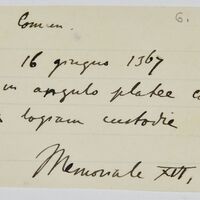 6.
Comun.
16 giugno 1367
in angulo platee co
logiam custodie
Memoriale XVI,